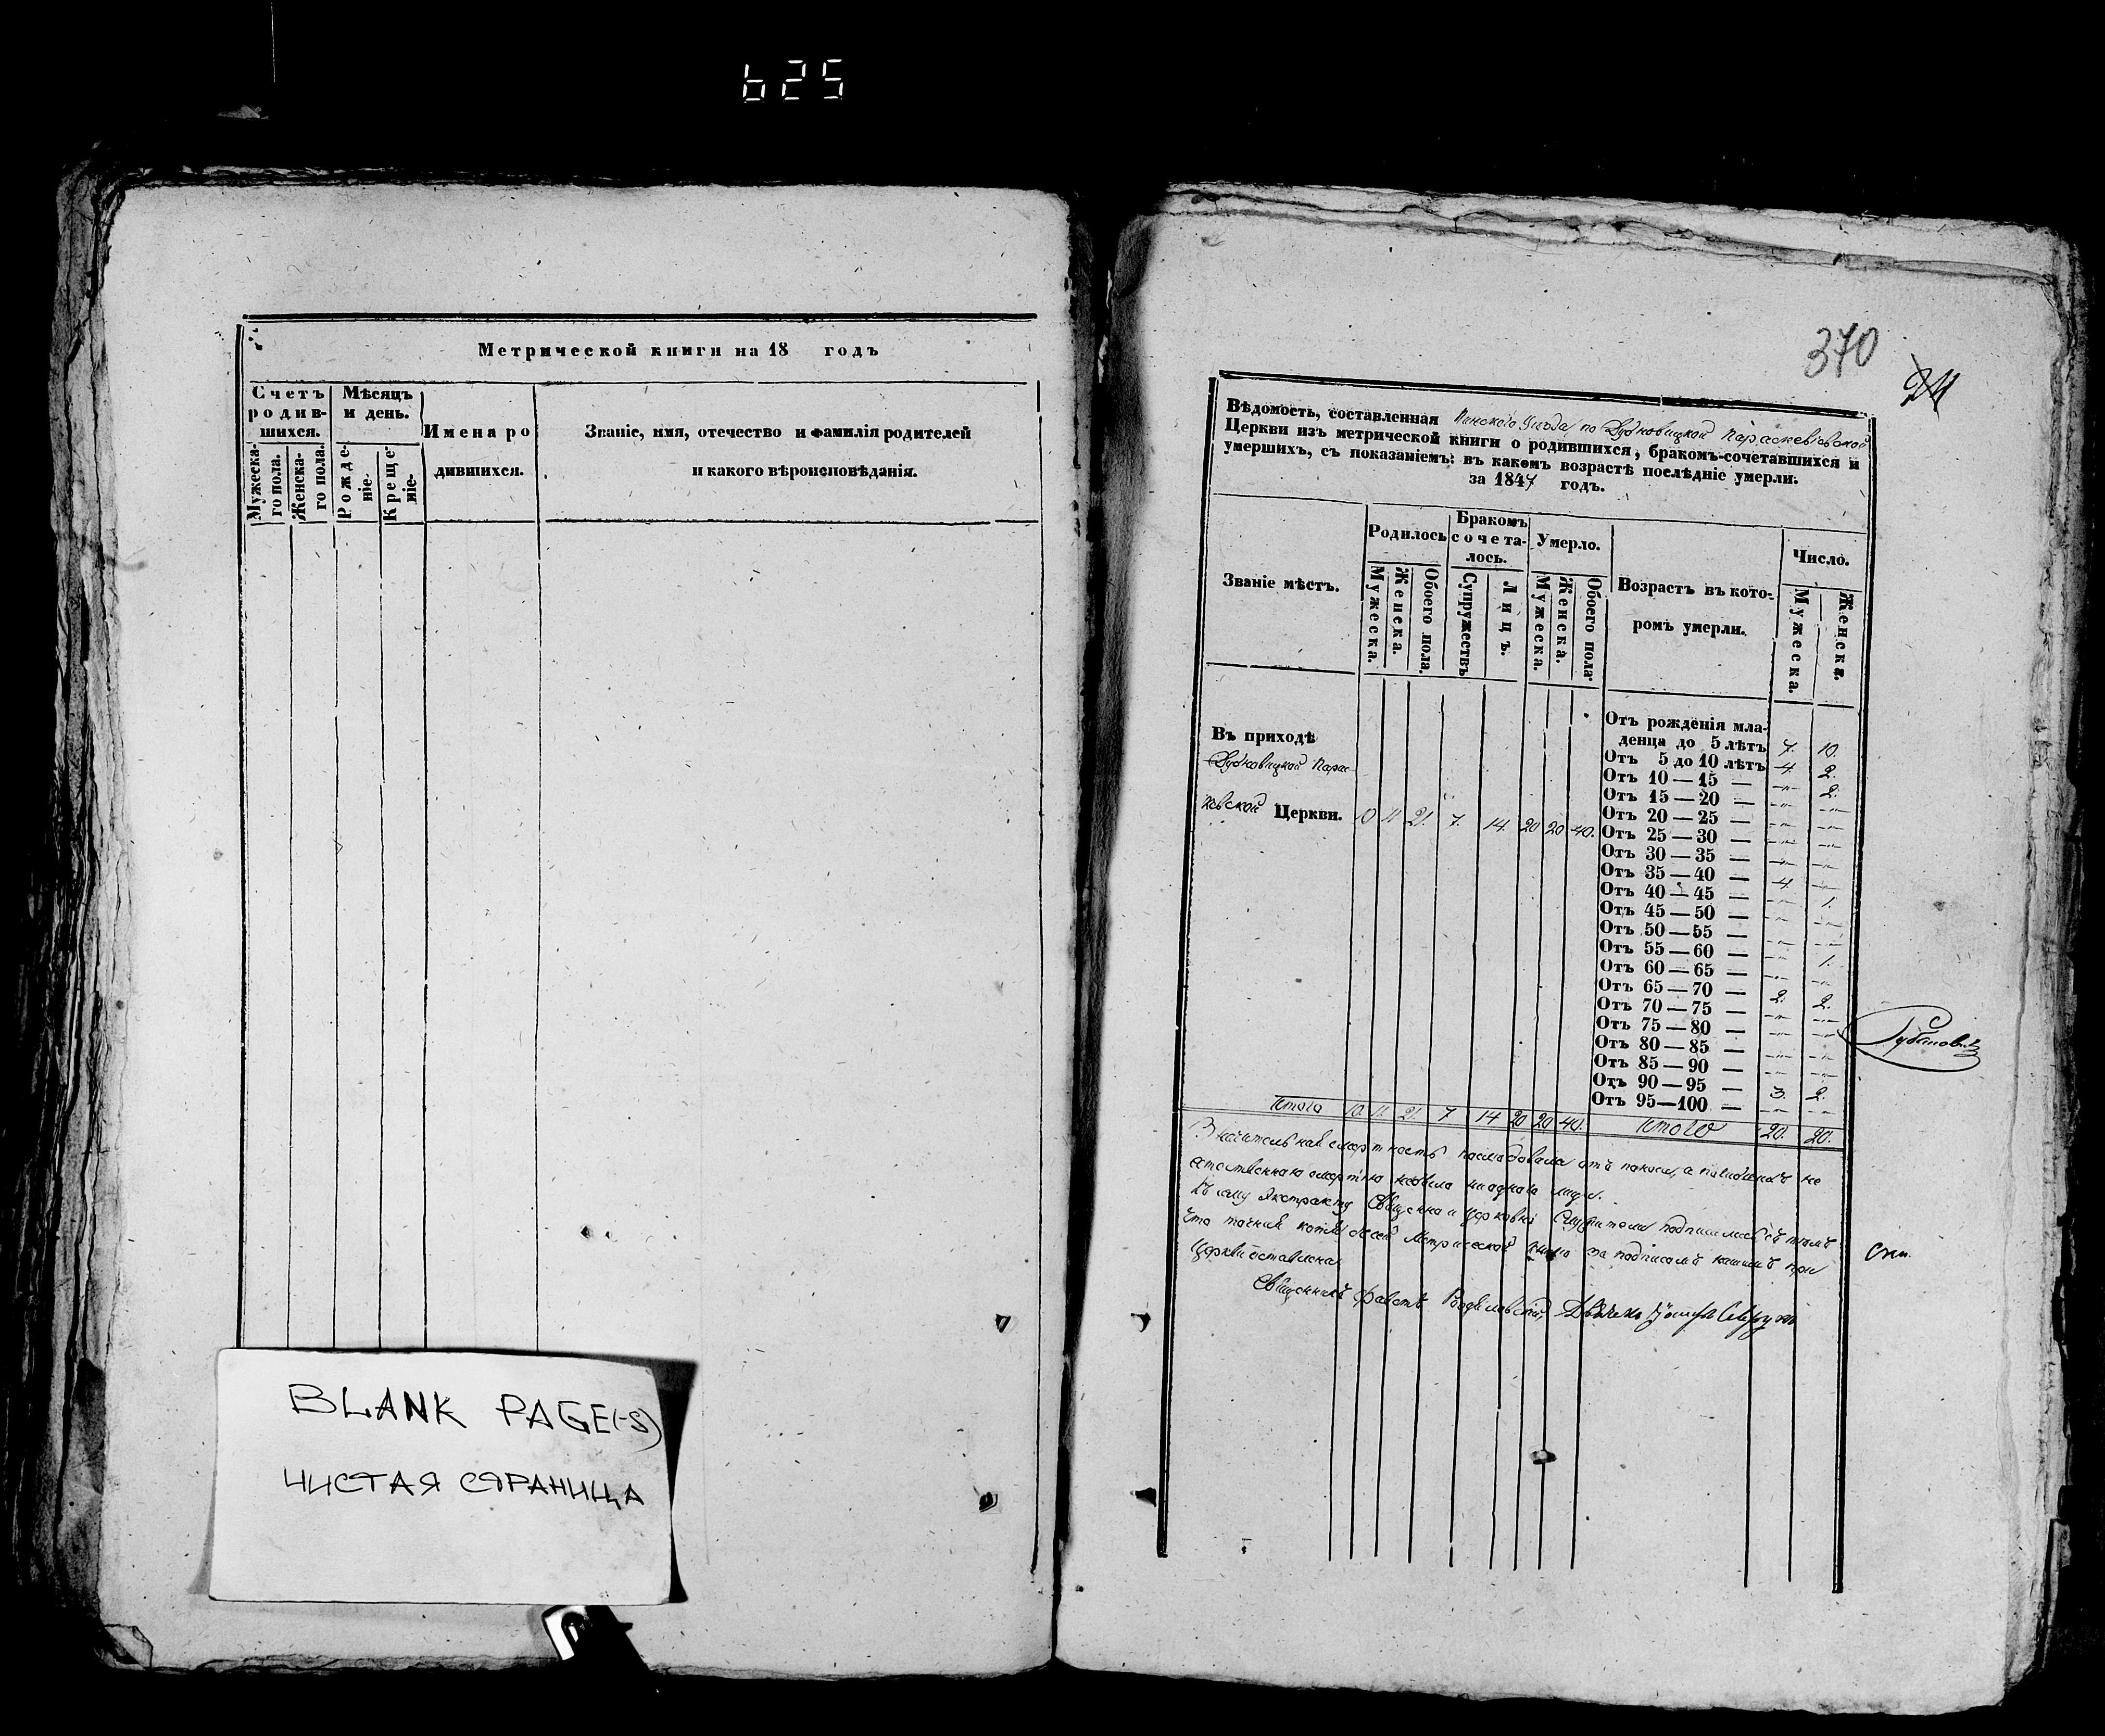 625
Метрической книги на 18 годъ
Счетъ родив-шихся.
Мѣсяцъ и день.
Имена ро
дившихся.
Званіе, имя, отечество и фамилія родителей
и какого вѣроисповѣданія.
Мужеска-го пола.
Женска-го пола.
Рожде-ніе.
Креще-ніе.
BLANK PAGE(-S)
ЧИСТАЯ СТРАНИЦА
370
Вѣдомость, составленная Пинского Уезда по Дубновицкой Параскевіевской
Церкви изъ метрической книги о родившихся, бракомъ-сочетавшихся и
умершихъ, съ показаніемъ: въ какомъ возрастѣ послѣдніе умерли.
за 1847 годъ.
Званіе мѣстъ.
Родилось
Бракомъ сочета-лось.
Умерло.
Возрастъ въ кото-
ромъ умерли.
Число.
Мужеска. Женска. Обоего пола.
Супружествъ Лицъ.
Мужеска. Женска. Обоего пола.
Мужеска. Женска.
Въ приходѣ
Дубновицкой Парас
Церкви. 10 11 21. 7. 14. 20 20 40.
Отъ рожденія мла-
денца до 5 лѣтъ 7. 10.
Отъ 5 до 10 лѣтъ 4. 2.
Отъ 10 — 15 — -"- 2.
Отъ 15 — 20 — -"- -"-
Отъ 20 — 25 — -"- -"-
Отъ 25 — 30 — -"- -"-
Отъ 30 — 35 — -"- -"-
Отъ 35 — 40 — 4. -"-
Отъ 40 — 45 — -"- 1.
Отъ 45 — 50 — -"- -"-
Отъ 50 — 55 — -"- -"-
Отъ 55 — 60 — -"- 1.
Отъ 60 — 65 — -"- -"-
Отъ 65 — 70 — 2. 2.
Отъ 70 — 75 — -"- -"-
Отъ 75 — 80 — -"- -"-
Отъ 80 — 85 — -"- -"-
Отъ 85 — 90 — -"- -"-
Отъ 90 — 95 — 3. 2.
Отъ 95—100 — -"- -"-
Итого 10. 11. 21. 7 14 20 20 40. Итого 20. 20.
Значительная смертность последовала отъ поноса, а не
естественною смертію небыло ни одного
Къ сему Экстракту Священно и Церковно Служители подписались съ темъ
что точная копія сей Метрической за подписомъ нашимъ при
Церкви оставлена
Священникъ